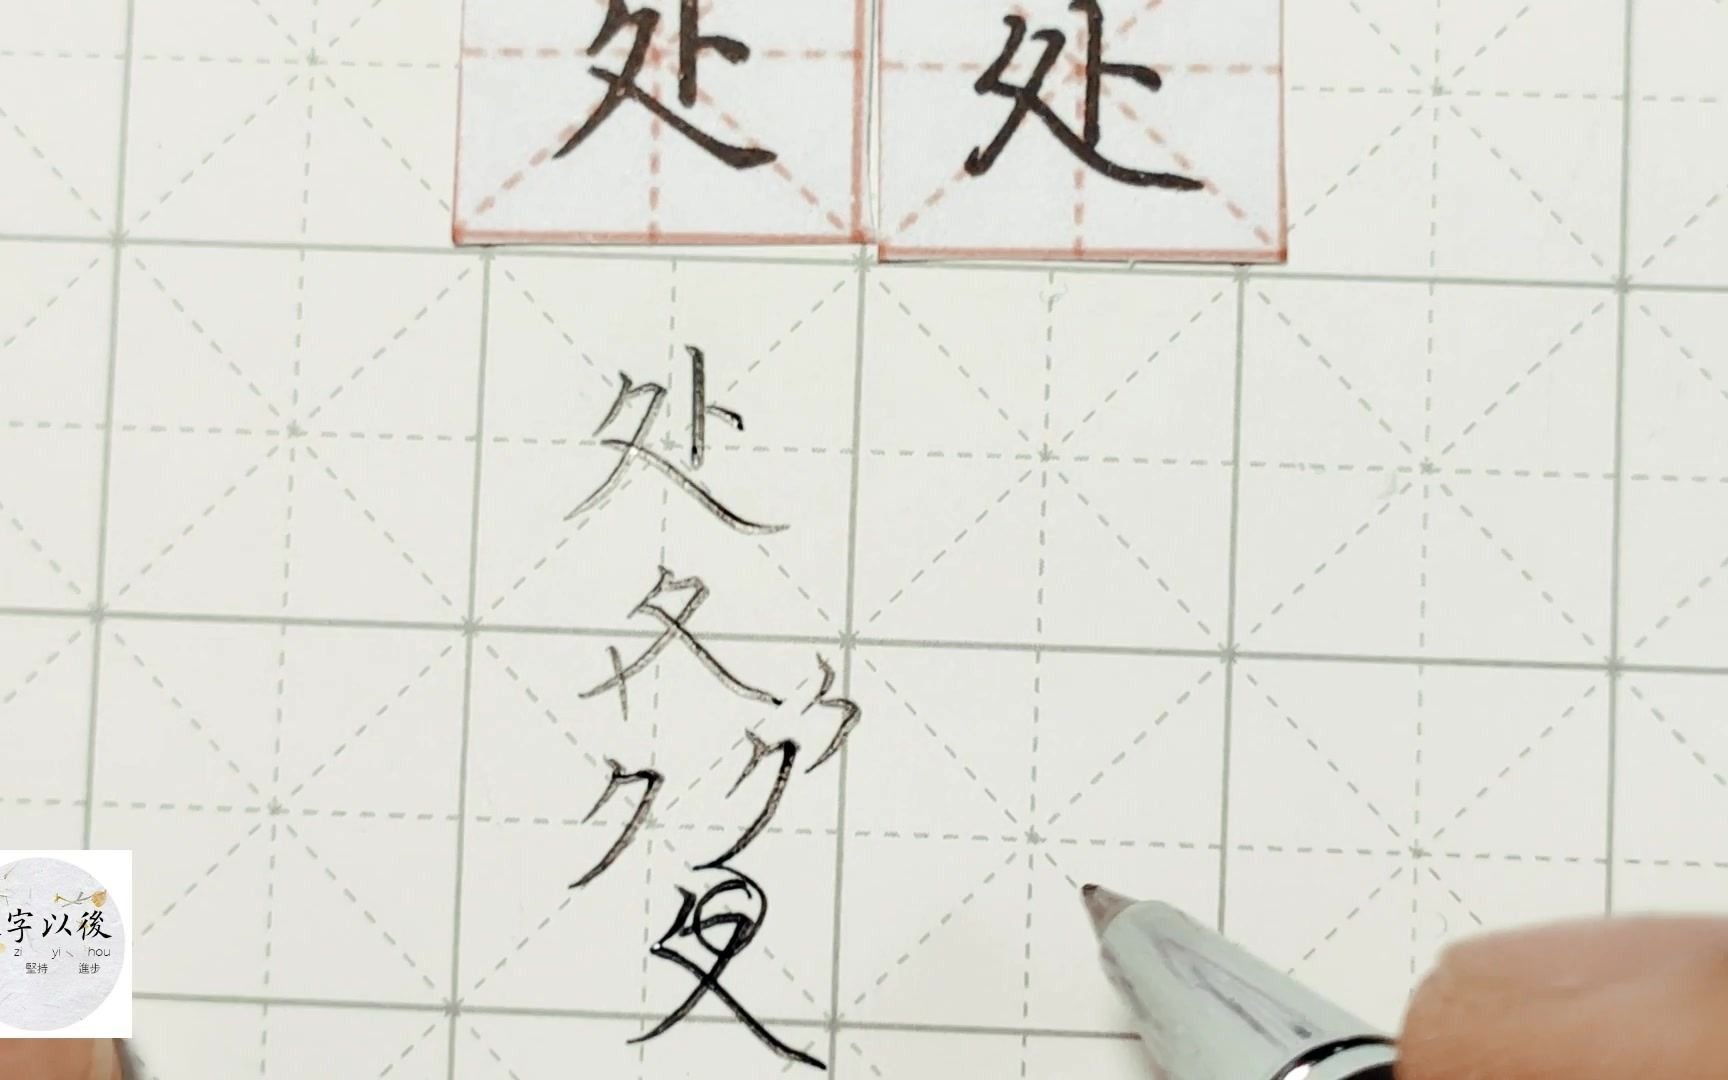 处 处
处
夂
字以後
zi yi hou
堅持 進步